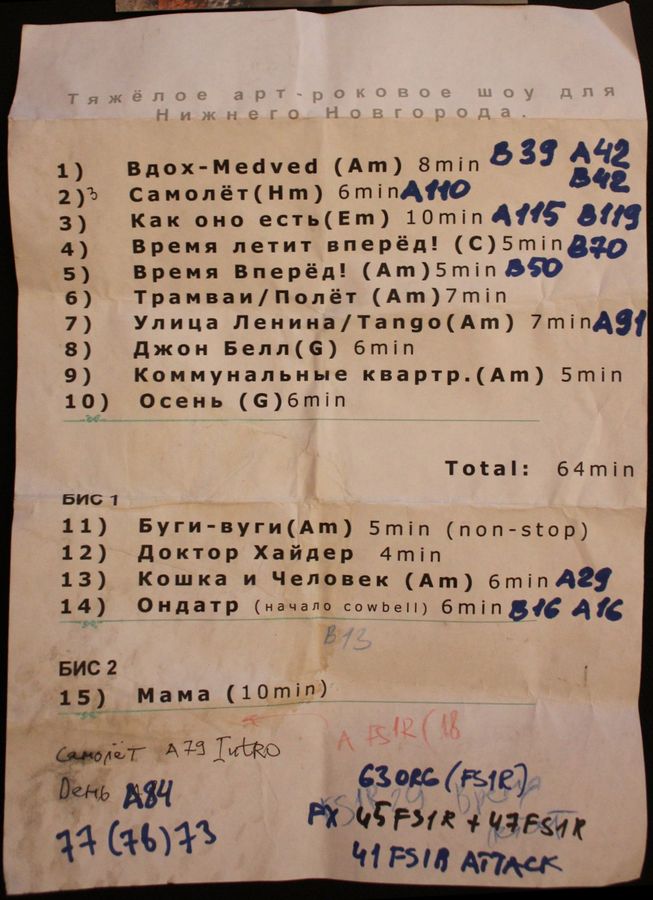 Тяжёлое арт-роковое шоу для
Нижнего Новгорода.
1) Вдох-Medved (Am) 8min B39 A42
B42
2)3 Самолёт(Hm) 6min A110
3) Как оно есть(Em) 10min A115 B119
4) Время летит вперёд! (C)5min B70
5) Время Вперёд! (Am)5min B50
6) Трамваи/Полёт (Am)7min
7) Улица Ленина/Tango(Am) 7min A91
8) Джон Белл(G) 6min
9) Коммунальные квартр.(Am) 5min
10) Осень (G)6min
Total: 64min
БИС 1
11) Буги-вуги(Am) 5min (non-stop)
12) Доктор Хайдер 4min
13) Кошка и Человек (Am) 6min A29
14) Ондатр (начало cowbell) 6min B16 A16
B13
БИС 2
15) Мама (10min)
A FS1R(18
Самолёт A79 Intro
День A84
77(76)73
63 ORG (FS1R)
FX 45FS1R + 47FS1R
41 FS1R ATTACK